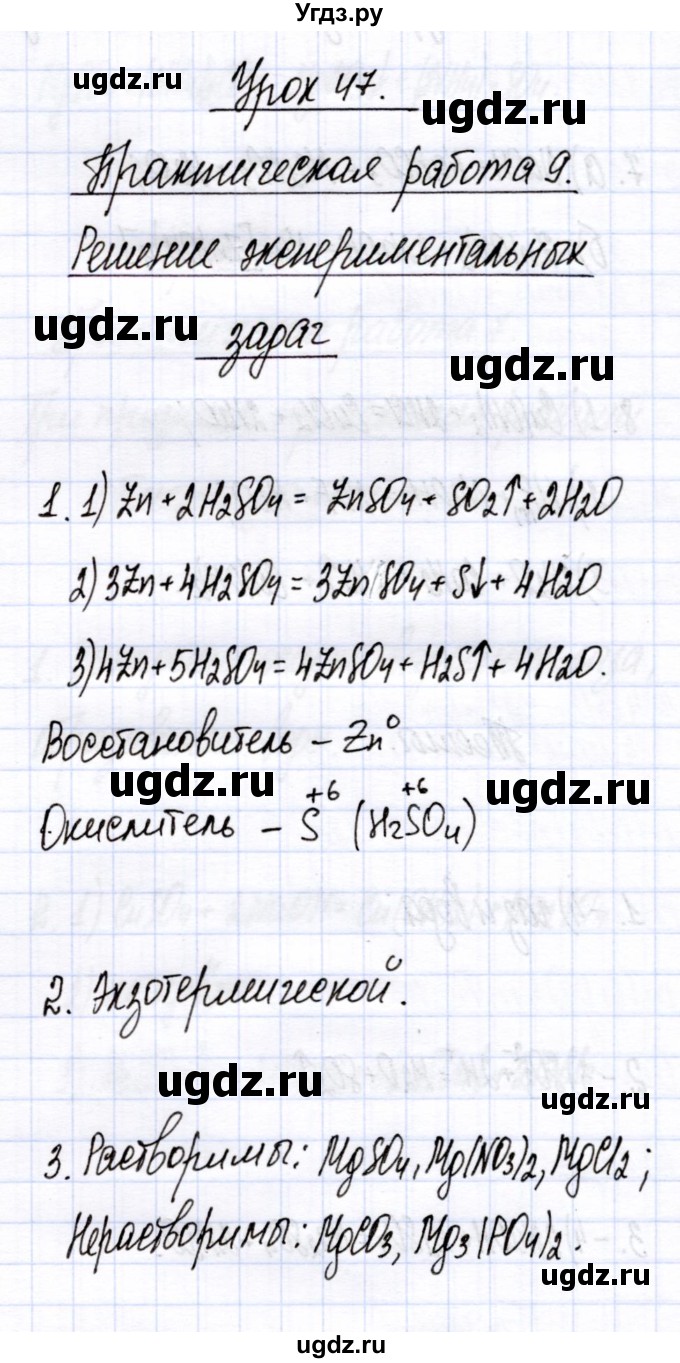 Угдз.ру
Урок 47.
ugdz.ru
ugdz.ru
Практическая работа 9.
Решение экспериментальных
ugdz.ru
задач
ugdz.ru
1. 1) Zn + 2H2SO4 = ZnSO4 + SO2↑ + 2H2O
2) 3Zn + 4H2SO4 = 3ZnSO4 + S↓ + 4H2O
3) 4Zn + 5H2SO4 = 4ZnSO4 + H2S↑ + 4H2O.
Восстановитель – Zn⁰
ugdz.ru
ugdz.ru
Окислитель – S⁺⁶ (H2S⁺⁶O4)
2. Экзотермической.
ugdz.ru
ugdz.ru
3. Растворимы: MgSO4, Mg(NO3)2, MgCl2;
Нерастворимы: MgCO3, Mg3(PO4)2.
ugdz.ru
ugdz.ru